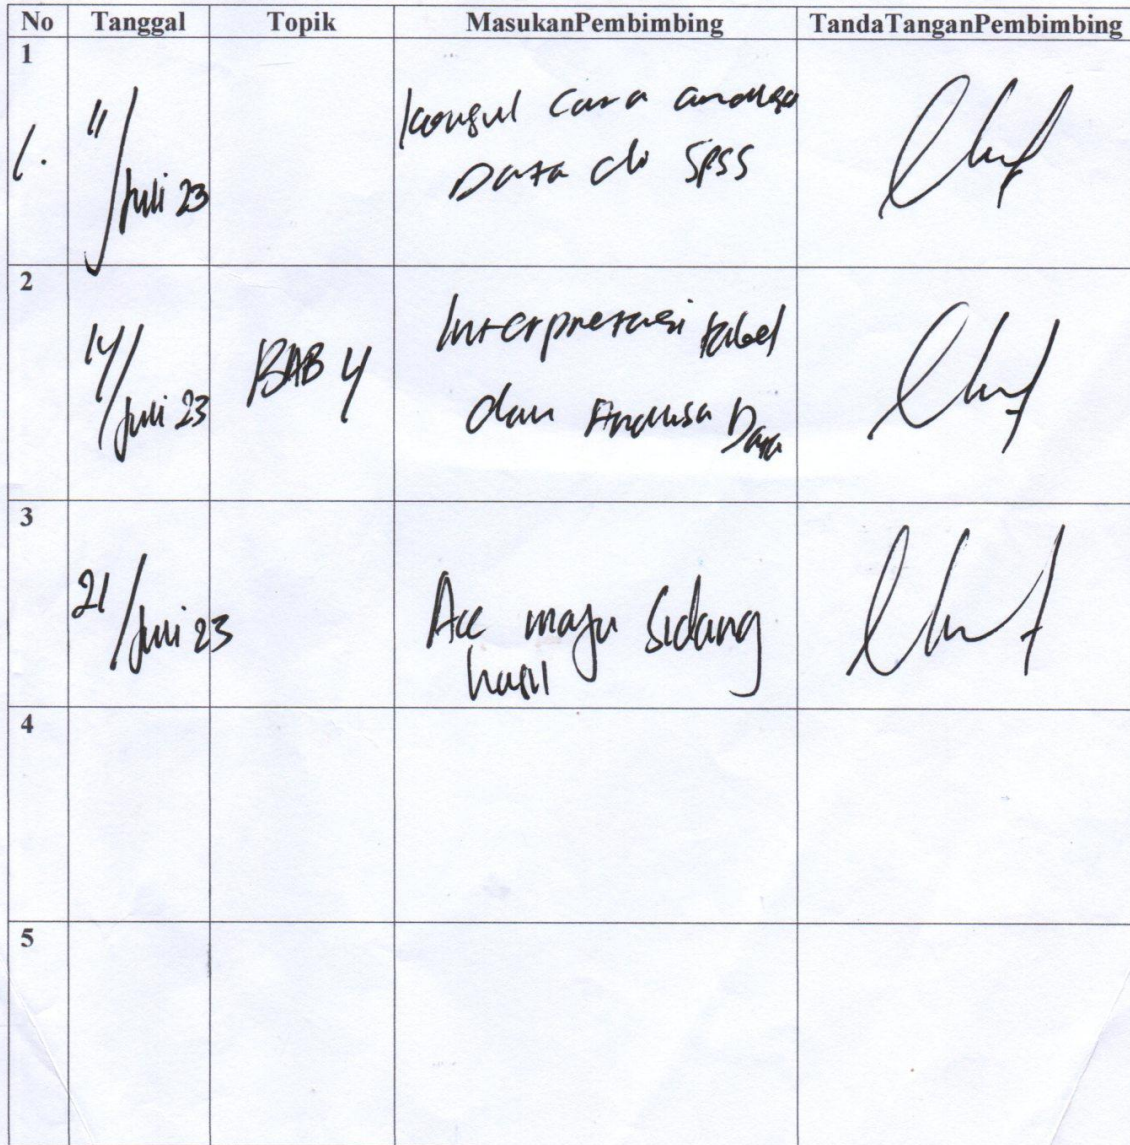 No Tanggal Topik MasukanPembimbing TandaTanganPembimbing
1
1. 11/Juli 23 Konsul Cara analisa
Data di SPSS
2
14/Juli 23 BAB 4 Interpretasi tabel
dan Analisa Data
3
21/Juli 23 Acc maju Sidang
hasil
4
5